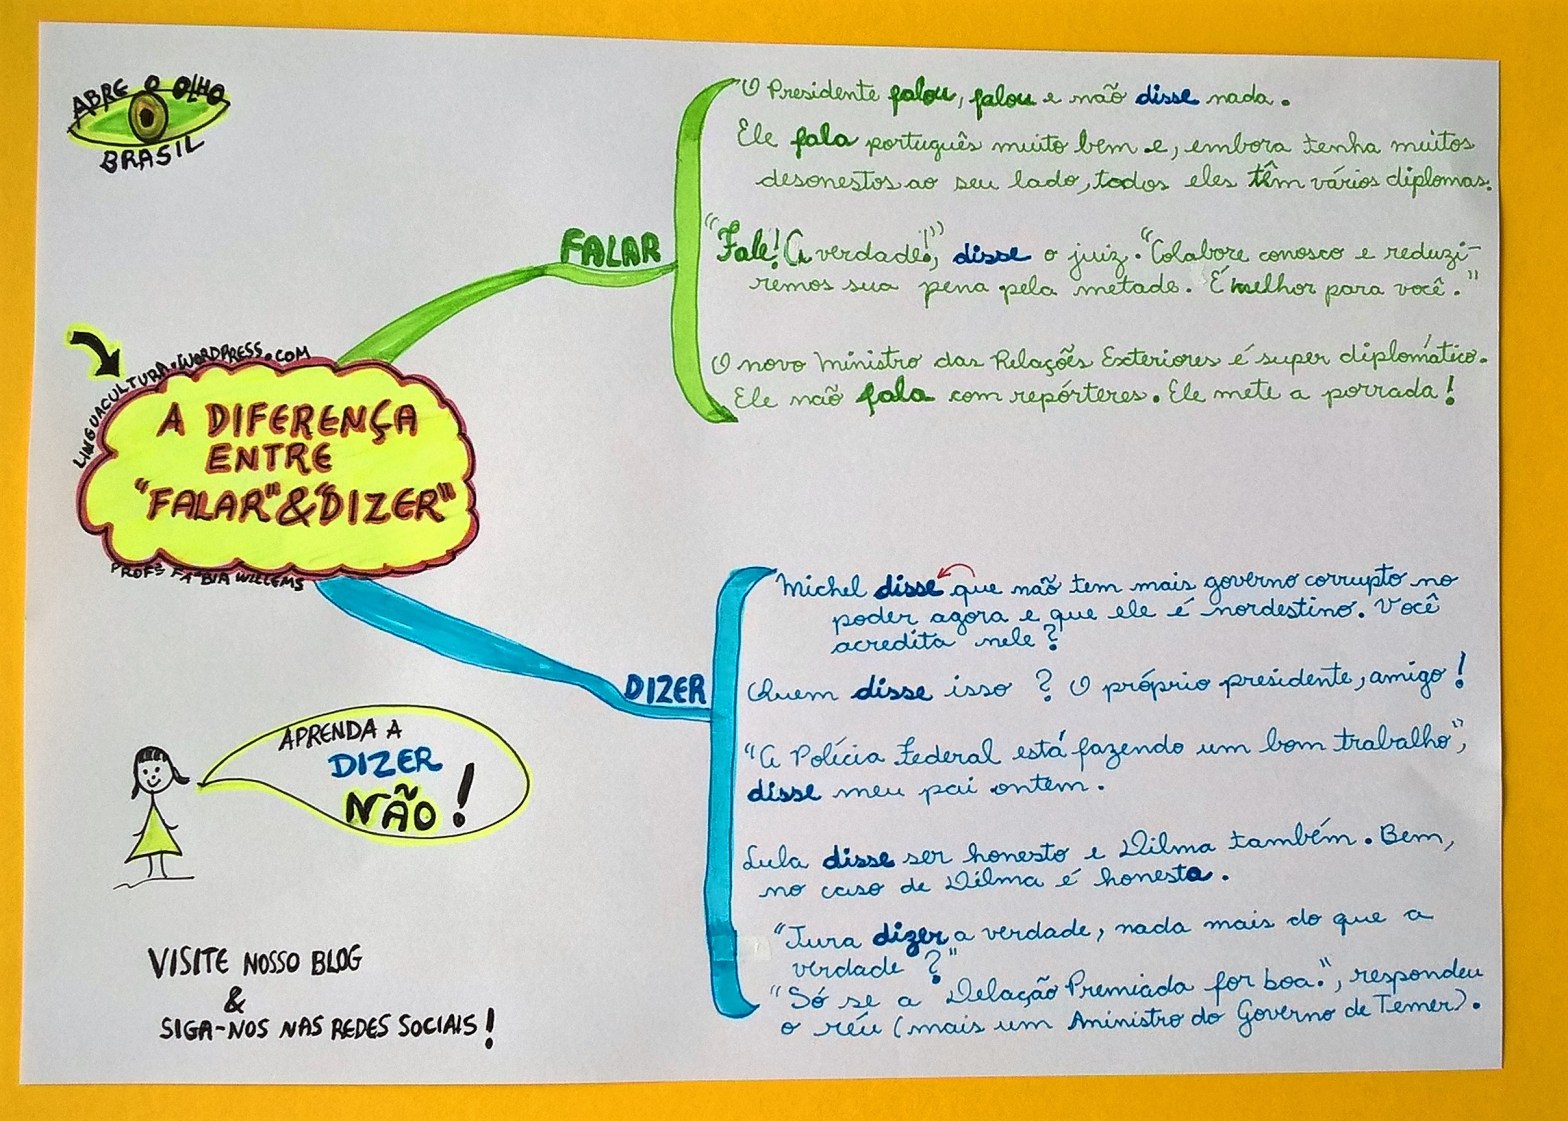 ABRE O OLHO
BRASIL
FALAR
O Presidente falou, falou e não disse nada.
Ele fala português muito bem e, embora tenha muitos
desonestos ao seu lado, todos eles têm vários diplomas.
"Fale! (A verdade!)", disse o juiz. "Colabore conosco e reduzi-
remos sua pena pela metade. É melhor para você."
O novo Ministro das Relações Exteriores é super diplomático.
Ele não fala com repórteres. Ele mete a porrada!
LINGUACULTURA.WORDPRESS.COM
A DIFERENÇA
ENTRE
"FALAR" & "DIZER"
PROFª FABIA WILLEMS
DIZER
Michel disse que não tem mais governo corrupto no
poder agora e que ele é nordestino. Você
acredita nele?
Quem disse isso? O próprio presidente, amigo!
"A Polícia Federal está fazendo um bom trabalho",
disse meu pai ontem.
Lula disse ser honesto e Dilma também. Bem,
no caso de Dilma é honesta.
"Jura dizer a verdade, nada mais do que a
verdade?"
"Só se a Delação Premiada for boa.", respondeu
o réu (mais um Aministro do Governo de Temer).
APRENDA A
DIZER
NÃO!
VISITE NOSSO BLOG
&
SIGA-NOS NAS REDES SOCIAIS!